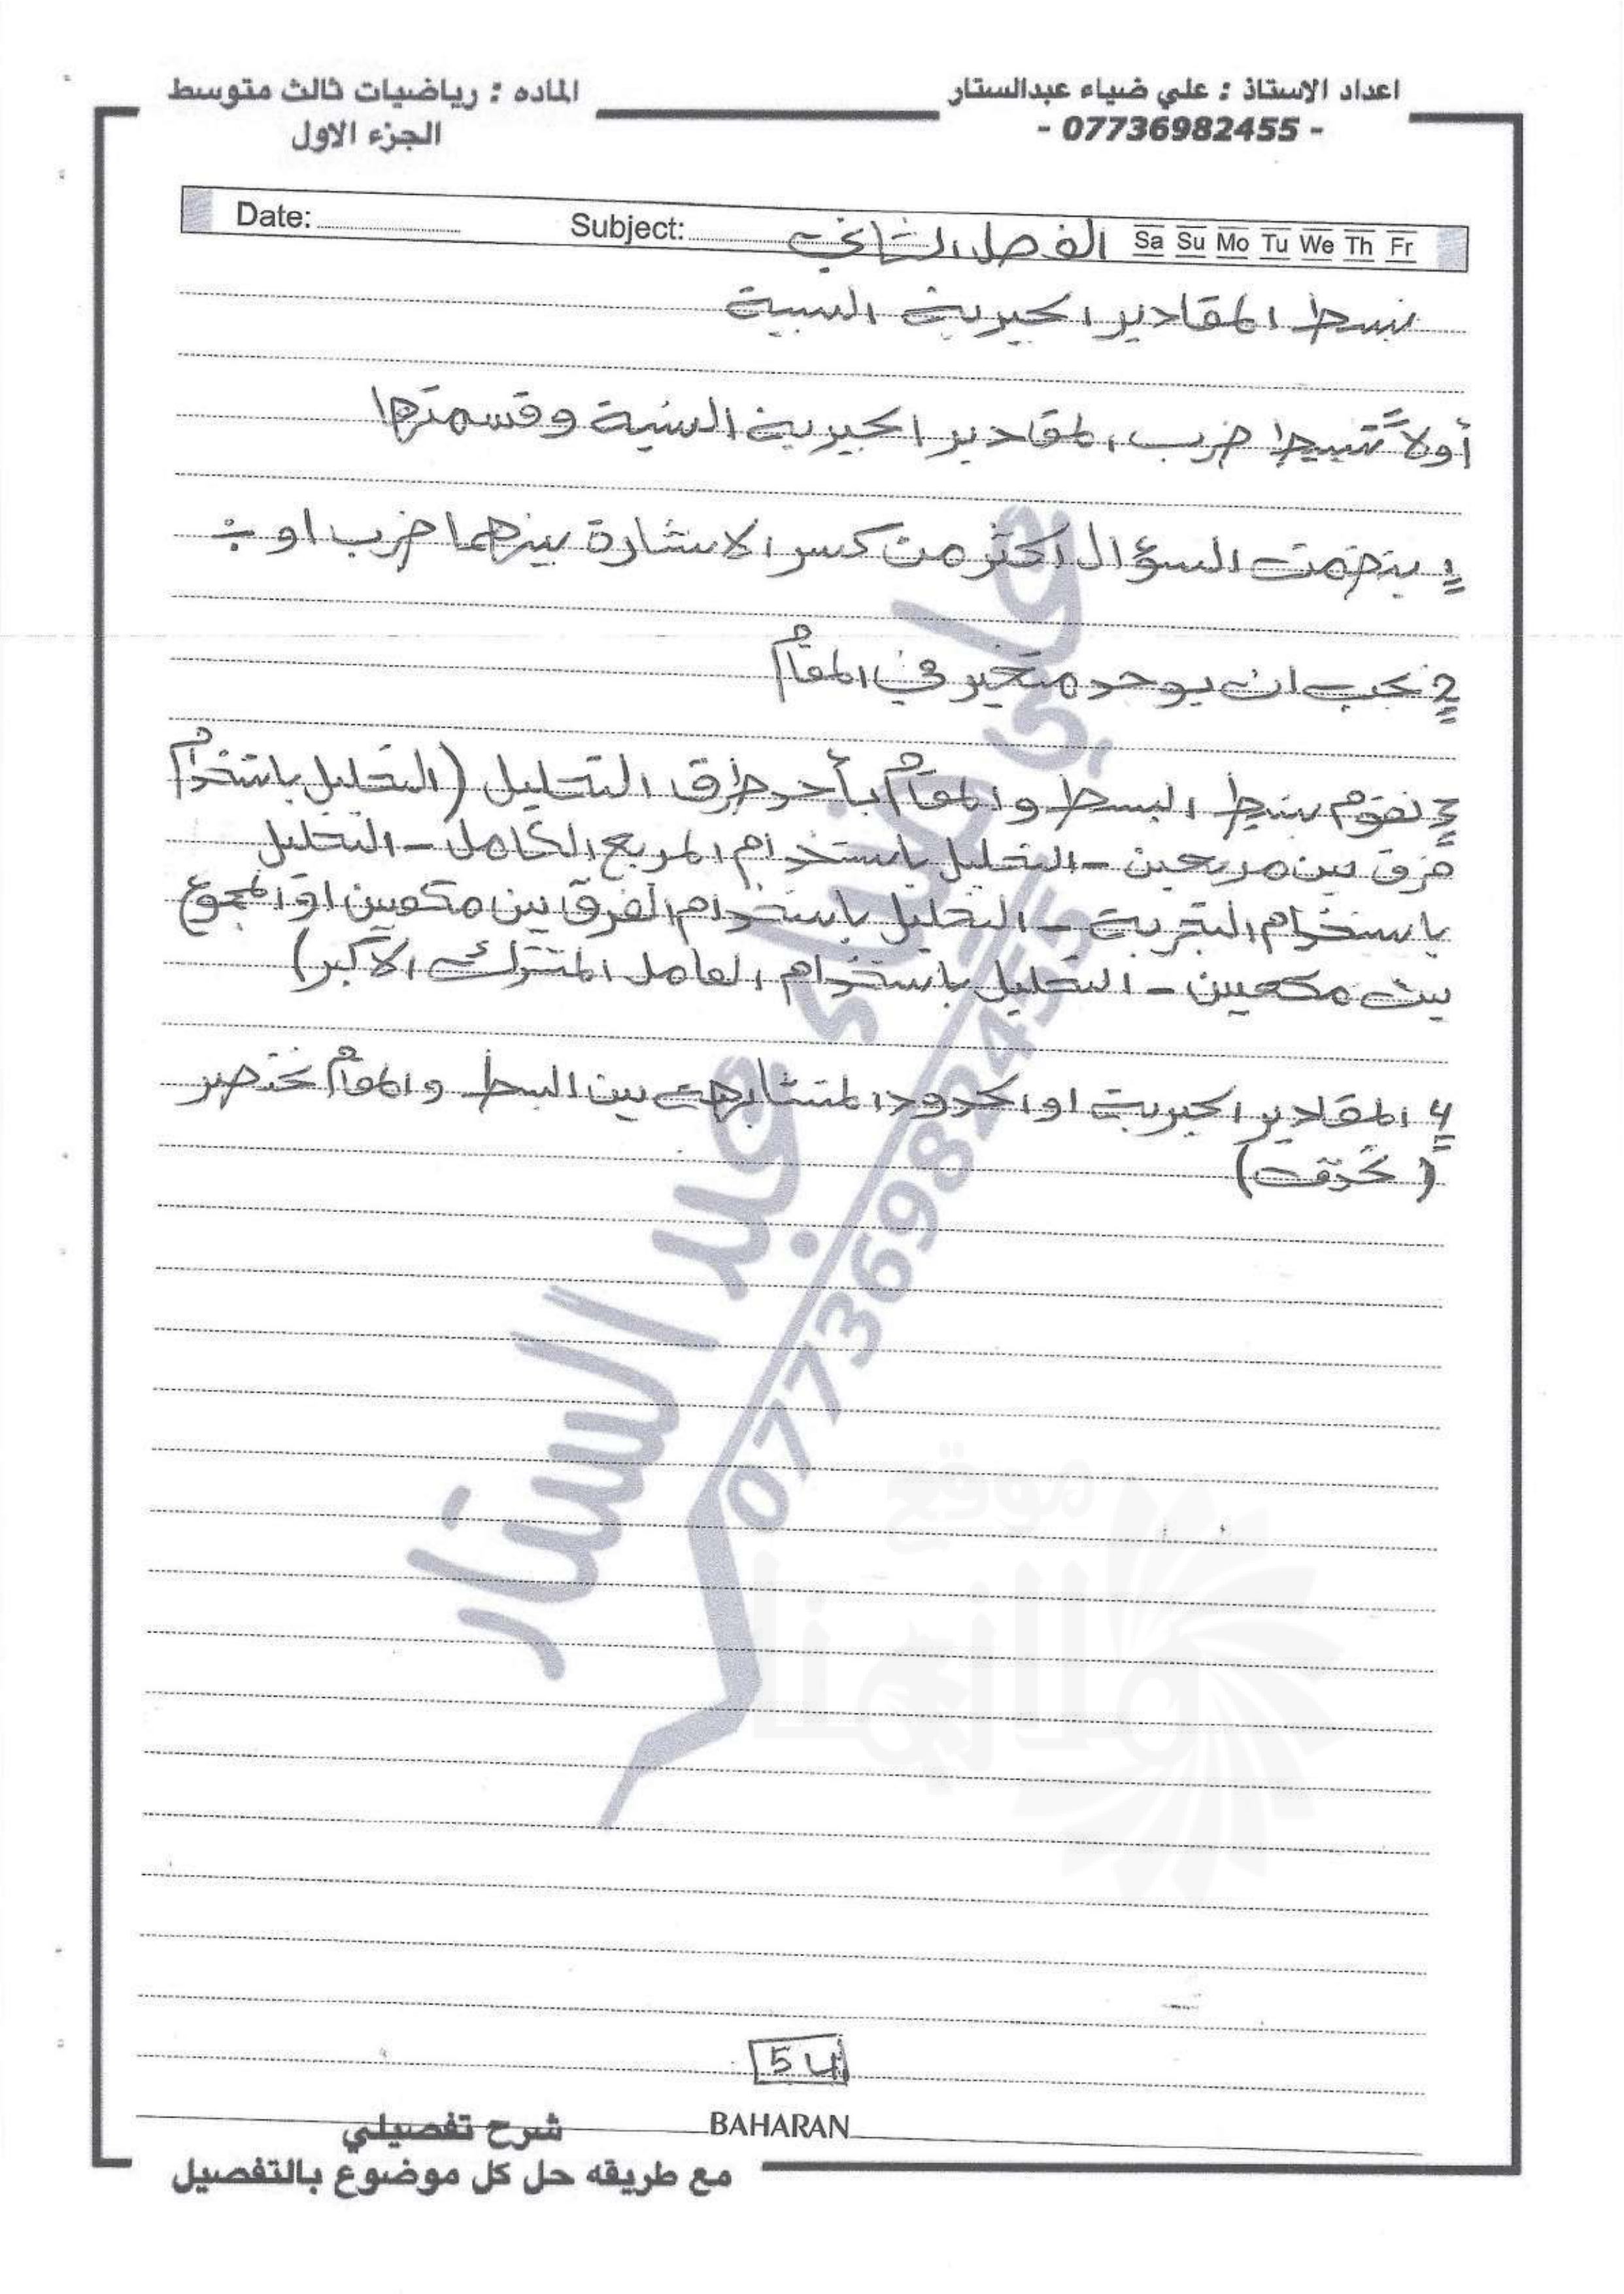 اعداد الاستاذ : علي ضياء عبدالستار
- 07736982455 -
الماده : رياضيات ثالث متوسط
الجزء الاول
Date: Subject: الفصل الثاني Sa Su Mo Tu We Th Fr
نبسط المقادير الجبرية النسبية
أولاً تبسيط ضرب المقادير الجبرية النسبية وقسمتها
1 يتضمن السؤال اكثر من كسر الاشارة بينهما ضرب او ÷
2 يجب ان يوجد متغير في المقام
3 نقوم بتبسيط البسط والمقام بأحد طرق التحليل (التحليل باستخدام
فرق بين مربعين - التحليل باستخدام المربع الكامل - التحليل
باستخدام التجربة - التحليل باستخدام الفرق بين مكعبين او المجموع
بين مكعبين - التحليل باستخدام العامل المشترك الاكبر)
4 المقادير الجبرية او الحدود المتشابهة بين البسط والمقام تختصر
(تحذف)
علي ضياء عبد الستار
07736982455
موقع
54
BAHARAN
شرح تفصيلي
مع طريقه حل كل موضوع بالتفصيل